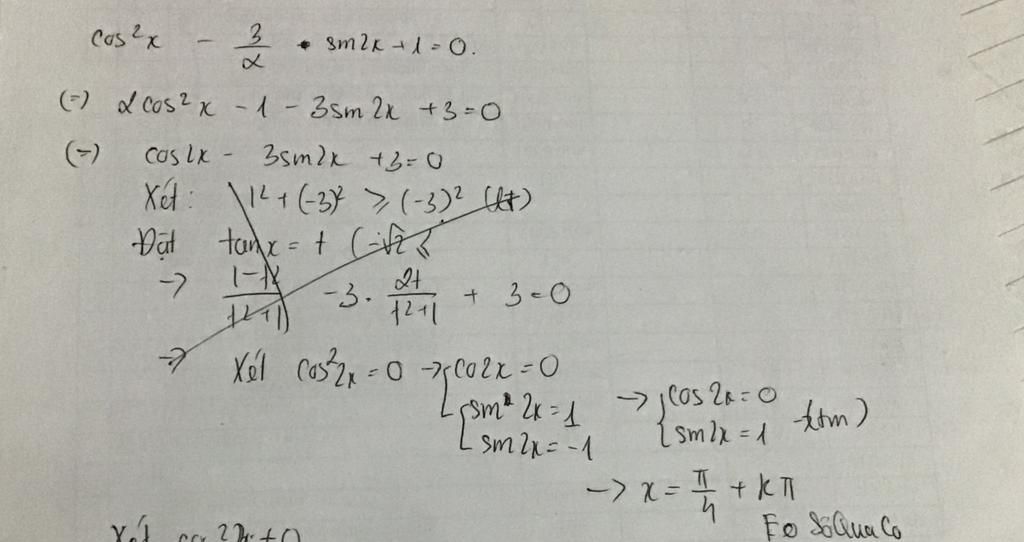 cos²x - 3/2 · sin2x + 1 = 0.
(=) 2cos²x - 1 - 3sin2x + 3 = 0
(=) cos2x - 3sin2x + 3 = 0
Xét: 1² + (-3)² ≥ (-3)² (lđ)
Đặt tanx = t (-√2 ≤
→ (1-t²)/(t²+1) - 3 · 2t/(t²+1) + 3 = 0
→ Xét cos²2x = 0 → { co2x = 0
[ sin 2x = 1 → { cos 2x = 0
sin2x = -1 sin2x = 1 (tm)
→ x = π/4 + kπ
Xét cos 2x ≠ 0 FB SóQuaCo